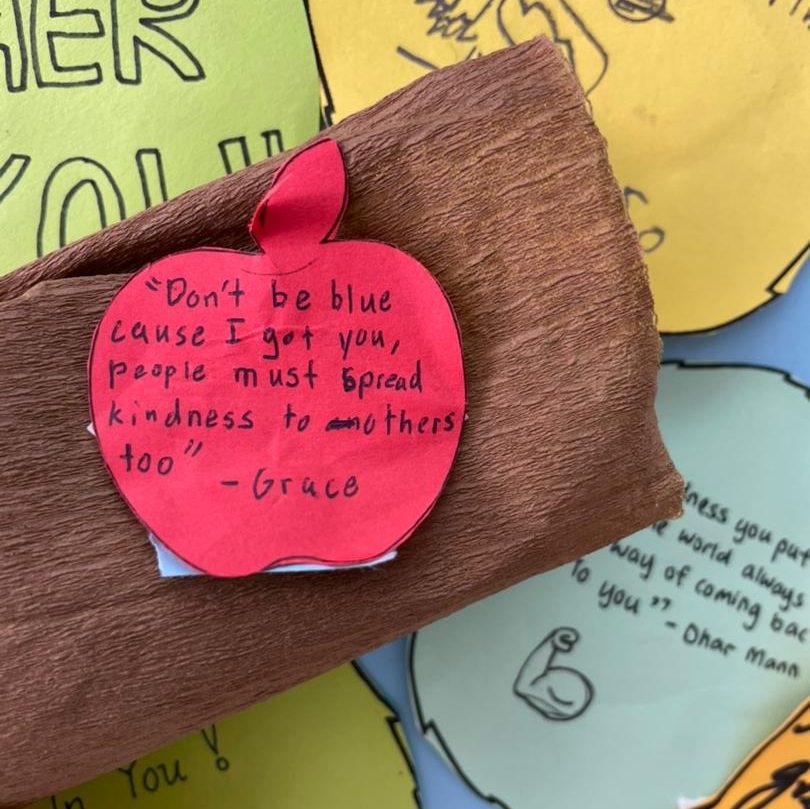 HER
YOU
"Don't be blue
cause I got you,
people must spread
kindness to others
too"
- Grace
you put
world always
way of coming
To you" - Dhar Mann
In You!